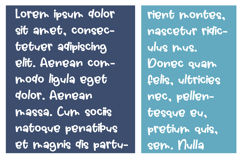 Lorem ipsum dolor
sit amet, consec-
tetuer adipiscing
elit. Aenean com-
modo ligula eget
dolor. Aenean
massa. Cum sociis
natoque penatibus
et magnis dis partu-
rient montes,
nascetur ridic-
ulus mus.
Donec quam
felis, ultricies
nec, pellen-
tesque eu,
pretium quis,
sem. Nulla